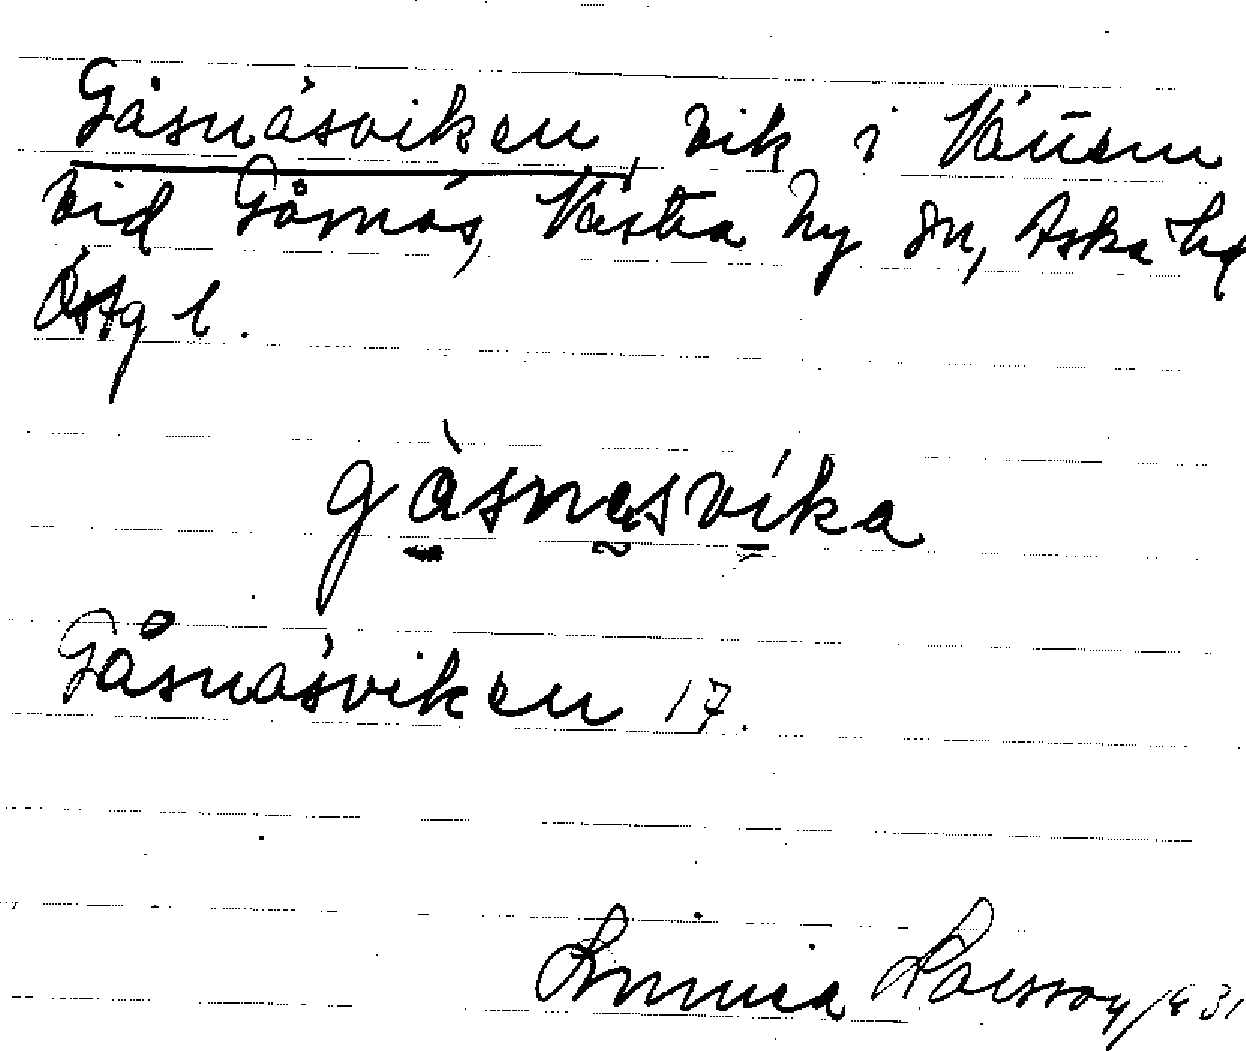 Gåsnäsviken, vik i Vättern
vid Gåsnäs, Västra Ny sn, Aska hd
Östg l.
gåsnasvika
Gåsnäsviken 17.
Linnea Larsson 1931